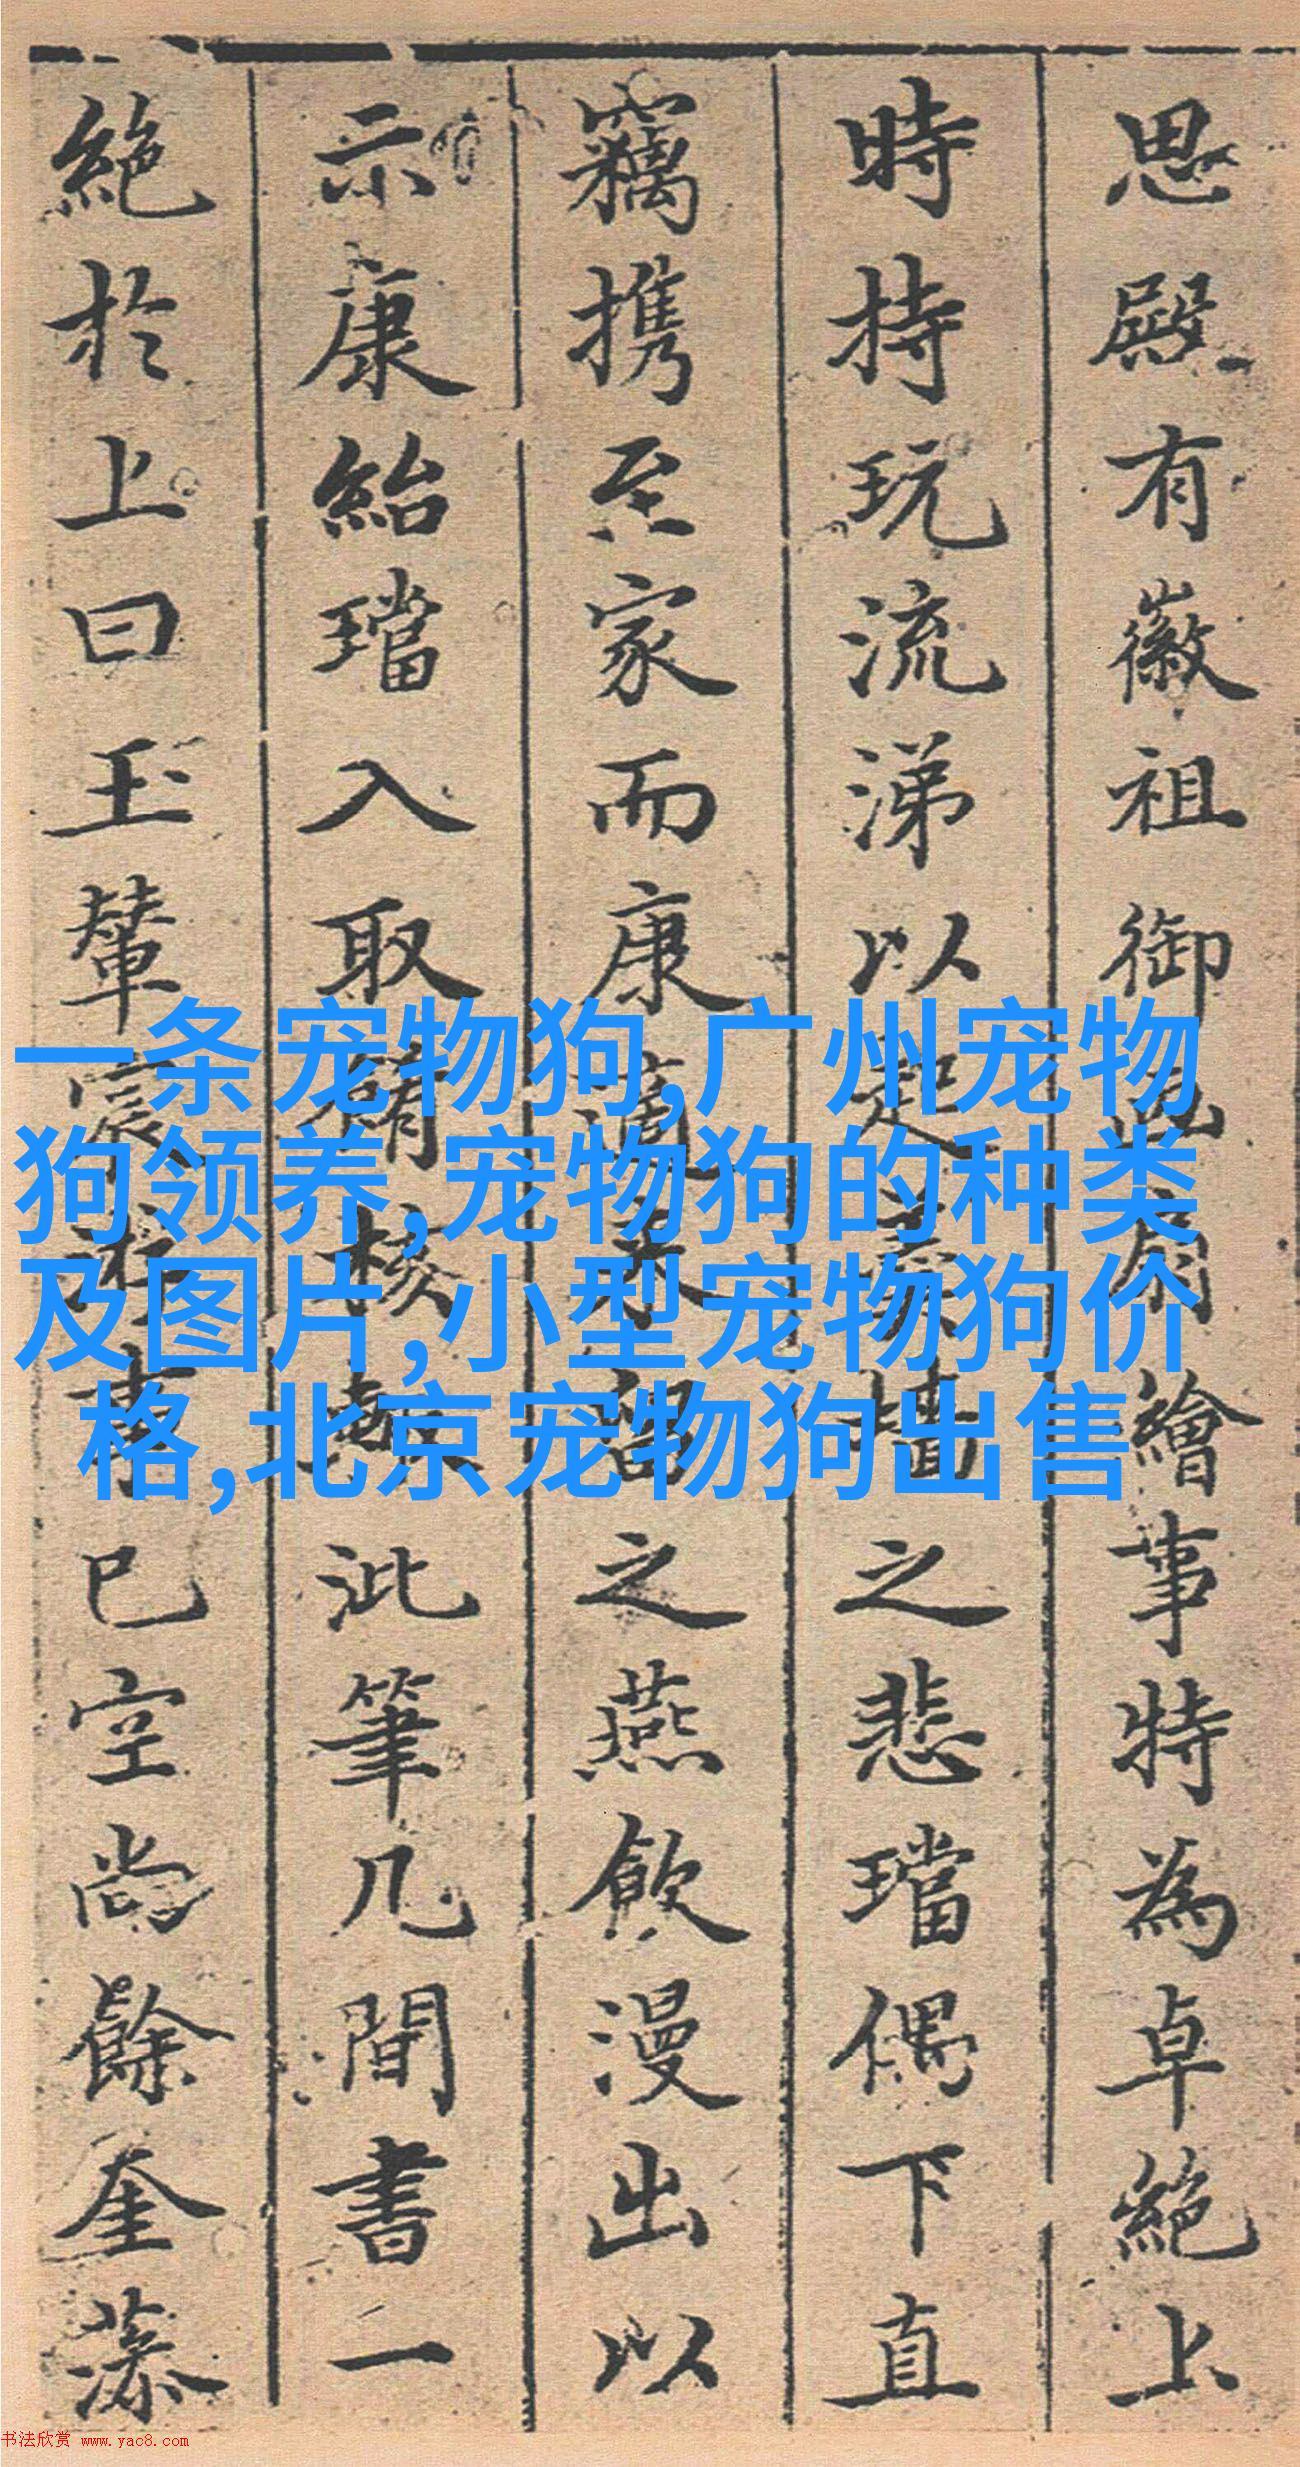 思殿有徽祖御扇繪事特為卓絕上
時持玩流涕以起墻之悲璫偶下直
竊携至家而康留之燕飲漫出以
示康紿璫入取核此筆几間書一
絕於上曰玉輦宸事已空尚餘奎藻
一条宠物狗,广州宠物
狗领养,宠物狗的种类
及图片,小型宠物狗价
格,北京宠物狗出售
书法欣赏 www.yac8.com